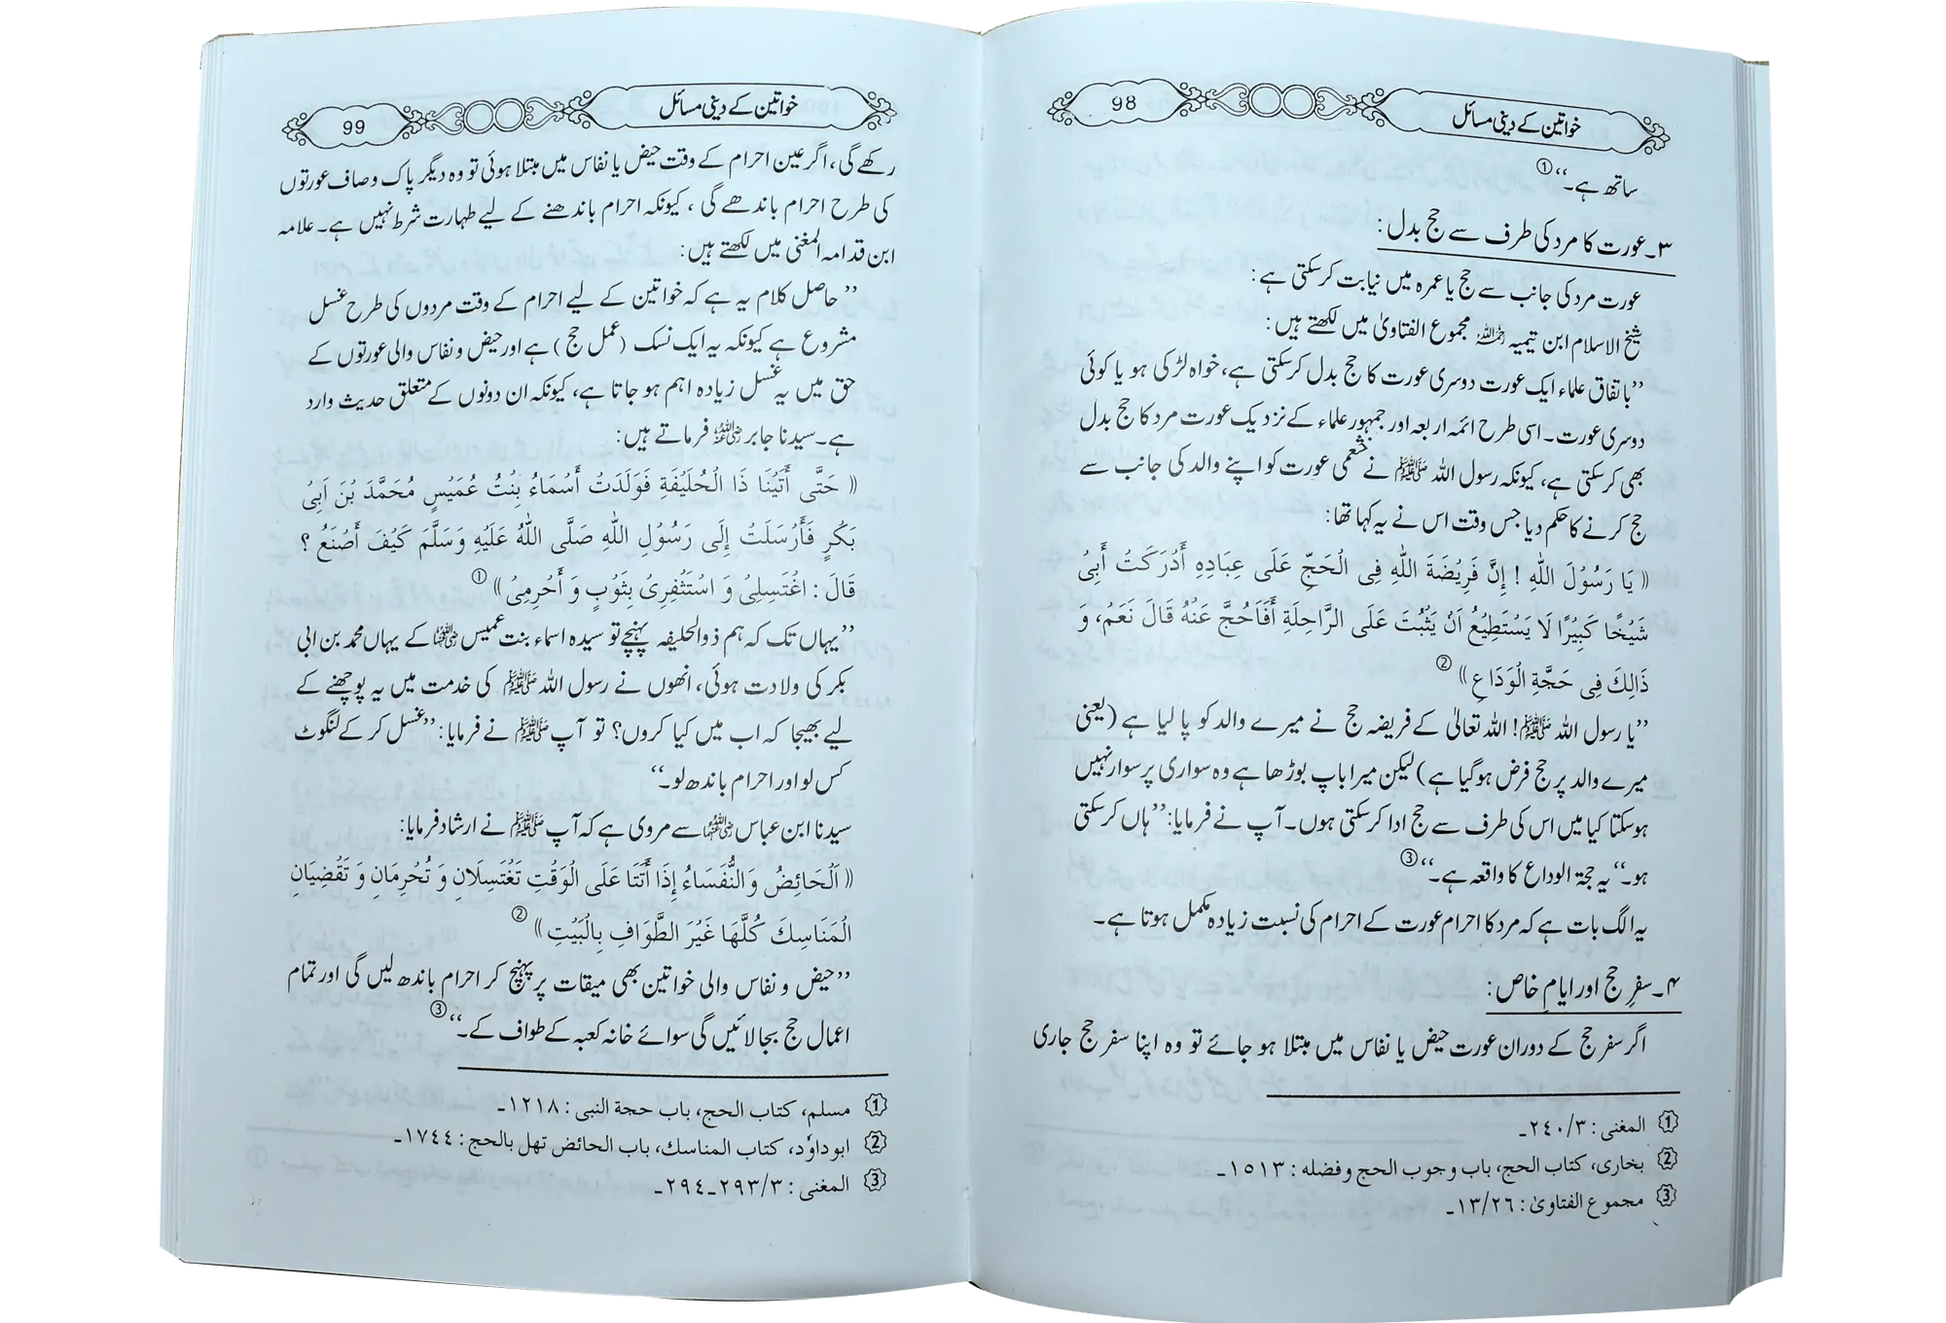 خواتین کے دینی مسائل
98
ساتھ ہے۔“①
۳۔عورت کا مرد کی طرف سے حج بدل:
عورت مرد کی جانب سے حج یا عمرہ میں نیابت کر سکتی ہے:
شیخ الاسلام ابن تیمیہ رحمہ اللہ مجموع الفتاویٰ میں لکھتے ہیں:
”باتفاق علماء ایک عورت دوسری عورت کا حج بدل کر سکتی ہے، خواہ لڑکی ہو یا کوئی
دوسری عورت۔ اسی طرح ائمہ اربعہ اور جمہور علماء کے نزدیک عورت مرد کا حج بدل
بھی کر سکتی ہے، کیونکہ رسول اللہ ﷺ نے خثعمی عورت کو اپنے والد کی جانب سے
حج کرنے کا حکم دیا جس وقت اس نے یہ کہا تھا:
(( يَا رَسُوْلَ اللّٰهِ ! إِنَّ فَرِيْضَةَ اللّٰهِ فِى الْحَجِّ عَلَى عِبَادِهِ أَدْرَكَتْ أَبِىْ
شَيْخًا كَبِيْرًا لَا يَسْتَطِيْعُ اَنْ يَثْبُتَ عَلَى الرَّاحِلَةِ أَفَاَحُجَّ عَنْهُ قَالَ نَعَمْ، وَ
ذَالِكَ فِى حَجَّةِ الْوَدَاعِ ))②
”یا رسول اللہ ﷺ! اللہ تعالیٰ کے فریضہ حج نے میرے والد کو پا لیا ہے (یعنی
میرے والد پر حج فرض ہو گیا ہے) لیکن میرا باپ بوڑھا ہے وہ سواری پر سوار نہیں
ہوسکتا کیا میں اس کی طرف سے حج ادا کرسکتی ہوں۔ آپ نے فرمایا: ”ہاں کرسکتی
ہو۔“ یہ حجۃ الوداع کا واقعہ ہے۔“③
یہ الگ بات ہے کہ مرد کا احرام عورت کے احرام کی نسبت زیادہ مکمل ہوتا ہے۔
۴۔سفرِ حج اور ایامِ خاص:
اگر سفر حج کے دوران عورت حیض یا نفاس میں مبتلا ہو جائے تو وہ اپنا سفر حج جاری
① المغنی : ٢٤٠/٣۔
② بخاری، کتاب الحج، باب وجوب الحج وفضله : ١٥١٣۔
③ مجموع الفتاویٰ : ١٣/٢٦۔
خواتین کے دینی مسائل
99
رکھے گی، اگر عین احرام کے وقت حیض یا نفاس میں مبتلا ہوئی تو وہ دیگر پاک و صاف عورتوں
کی طرح احرام باندھے گی، کیونکہ احرام باندھنے کے لیے طہارت شرط نہیں ہے۔ علامہ
ابن قدامہ المغنی میں لکھتے ہیں:
”حاصل کلام یہ ہے کہ خواتین کے لیے احرام کے وقت مردوں کی طرح غسل
مشروع ہے کیونکہ یہ ایک نسک (عمل حج) ہے اور حیض و نفاس والی عورتوں کے
حق میں یہ غسل زیادہ اہم ہو جاتا ہے، کیونکہ ان دونوں کے متعلق حدیث وارد
ہے۔ سیدنا جابر رضی اللہ عنہ فرماتے ہیں:
(( حَتَّى أَتَيْنَا ذَا الْحُلَيْفَةِ فَوَلَدَتْ أَسْمَاءُ بِنْتُ عُمَيْسٍ مُحَمَّدَ بْنَ اَبِىْ
بَكْرٍ فَأَرْسَلَتْ إِلَى رَسُوْلِ اللّٰهِ صَلَّى اللّٰهُ عَلَيْهِ وَسَلَّمَ كَيْفَ أَصْنَعُ ؟
قَالَ : اغْتَسِلِىْ وَ اسْتَثْفِرِىْ بِثَوْبٍ وَ أَحْرِمِىْ ))①
”یہاں تک کہ ہم ذوالحلیفہ پہنچے تو سیدہ اسماء بنت عمیس رضی اللہ عنہا کے یہاں محمد بن ابی
بکر کی ولادت ہوئی، انھوں نے رسول اللہ ﷺ کی خدمت میں یہ پوچھنے کے
لیے بھیجا کہ اب میں کیا کروں؟ تو آپ ﷺ نے فرمایا: ”غسل کر کے لنگوٹ
کس لو اور احرام باندھ لو۔“
سیدنا ابن عباس رضی اللہ عنہما سے مروی ہے کہ آپ ﷺ نے ارشاد فرمایا:
(( اَلْحَائِضُ وَالنُّفَسَاءُ إِذَا أَتَتَا عَلَى الْوَقْتِ تَغْتَسِلَانِ وَ تُحْرِمَانِ وَ تَقْضِيَانِ
الْمَنَاسِكَ كُلَّهَا غَيْرَ الطَّوَافِ بِالْبَيْتِ ))②
”حیض و نفاس والی خواتین بھی میقات پر پہنچ کر احرام باندھ لیں گی اور تمام
اعمال حج بجا لائیں گی سوائے خانہ کعبہ کے طواف کے۔“③
① مسلم، کتاب الحج، باب حجة النبی : ١٢١٨۔
② ابوداوٗد، کتاب المناسك، باب الحائض تهل بالحج : ١٧٤٤۔
③ المغنی : ٢٩٣/٣۔٢٩٤۔